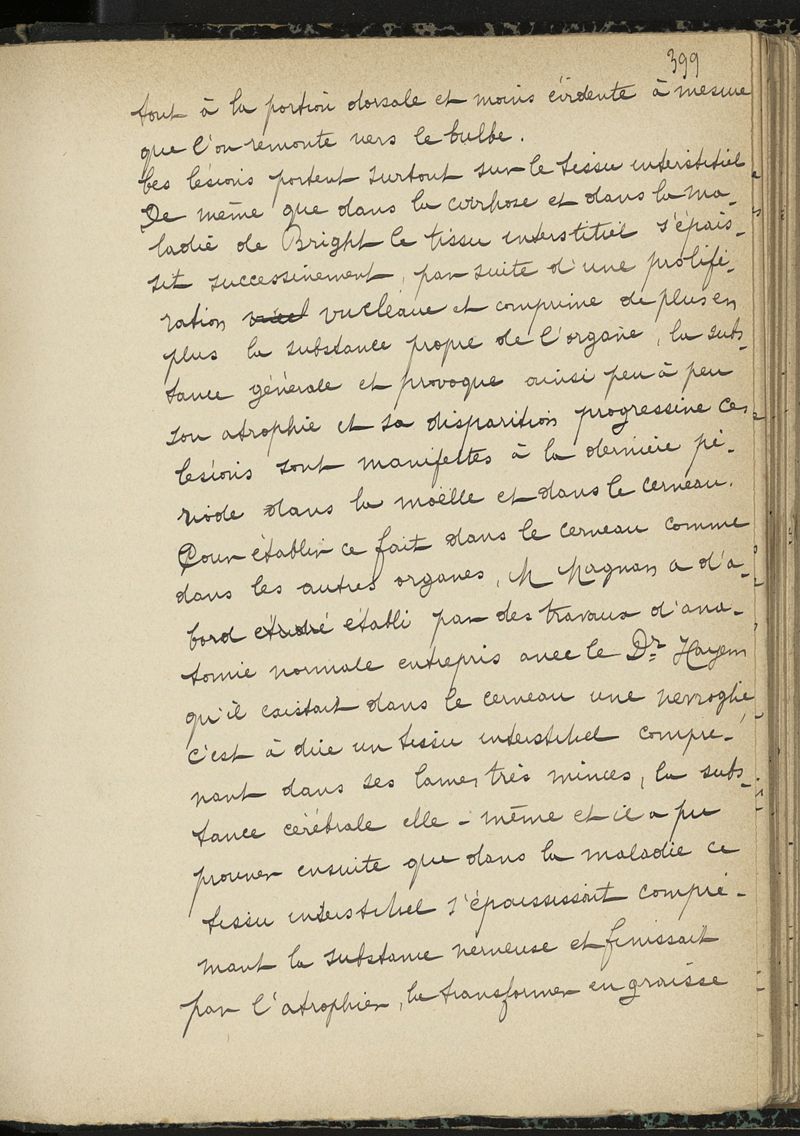 399
tout à la portion dorsale et moins évidente à mesure
que l'on remonte vers le bulbe.
Ces lésions portent surtout sur le tissu interstitiel
De même que dans la cirrhose et dans la ma-
ladie de Bright le tissu interstitiel s'épais-
sit successivement, par suite d'une prolifé-
ration nucléaire et comprime de plus en
plus la substance propre de l'organe, la subs-
tance générale et provoque ainsi peu à peu
son atrophie et sa disparition progressive ces
lésions sont manifestes à la dernière pé-
riode dans la moëlle et dans le cerveau.
Pour établir ce fait dans le cerveau comme
dans les autres organes, M Magnan a d'a-
bord étudié établi par des travaux d'ana-
tomie normale entrepris avec le Dr Hayem
qu'il existait dans le cerveau une nevroglie
c'est à dire un tissu interstitiel compre-
nant dans ses lames très minces, la subs-
tance cérébrale elle-même et il a pu
prouver ensuite que dans la maladie ce
tissu interstitiel s'épaississait compri-
mant la substance nerveuse et finissait
par l'atrophier, la transformer en graisse